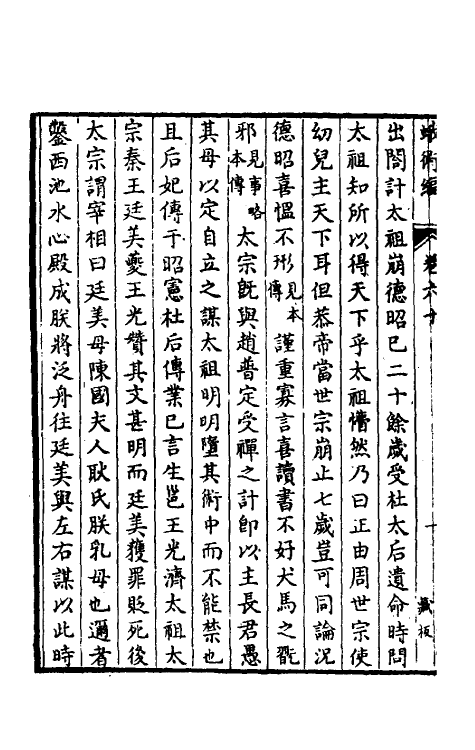 蛾術編
卷六十
十
藏板
出閤計太祖崩德昭已二十餘歲受杜太后遺命時問
太祖知所以得天下乎太祖懵然乃曰正由周世宗使
幼兒主天下耳但恭帝當世宗崩止七歲豈可同論況
德昭喜慍不形見本傳謹重寡言喜讀書不好犬馬之翫
邪見事略本傳太宗旣與趙普定受禪之計卽以主長君愚
其母以定自立之謀太祖明明墮其術中而不能禁也
且后妃傳于昭憲杜后傳業已言生邕王光濟太祖太
宗秦王廷美夔王光贊其文甚明而廷美獲罪貶死後
太宗謂宰相曰廷美母陳國夫人耿氏朕乳母也邇者
鑿西池水心殿成朕將泛舟往廷美與左右謀以此時